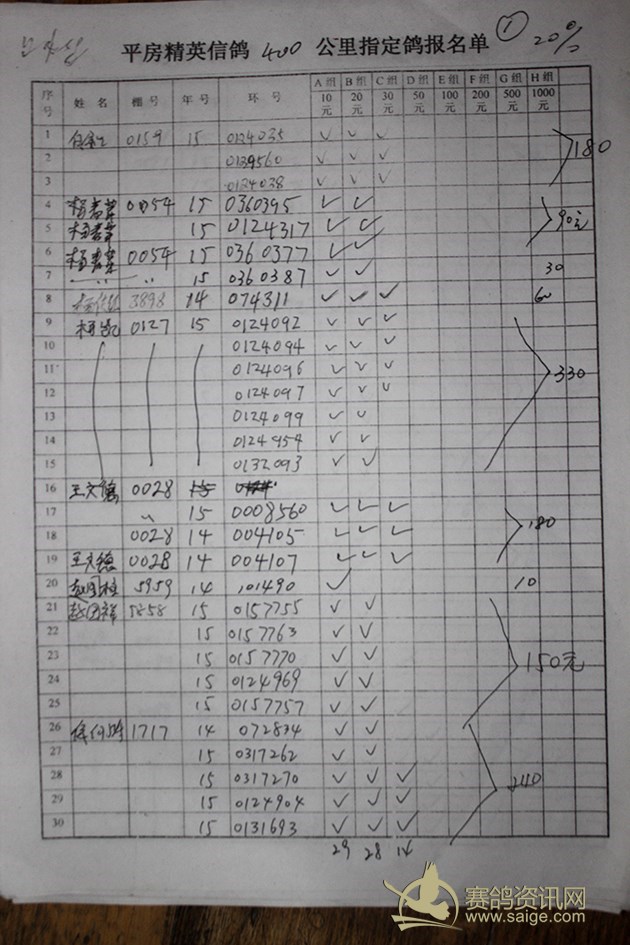 平房精英信鸽 400 公里指定鸽报名单 ① 20%
序号 姓名 棚号 年号 环号 A组10元 B组20元 C组30元 D组50元 E组100元 F组200元 G组500元 H组1000元
1 0159 15 0124035 ✓ ✓ ✓
2 0139560 ✓ ✓ ✓ 180
3 0124038 ✓ ✓ ✓
4 0054 15 0360395 ✓ ✓
5 15 0124317 ✓ ✓ 90元
6 0054 15 0360377 ✓ ✓
7 〃 15 0360387 ✓ ✓ 30
8 3898 14 074311 ✓ ✓ ✓ 60
9 0127 15 0124092 ✓ ✓ ✓
10 0124094 ✓ ✓ ✓
11 0124096 ✓ ✓ ✓ 330
12 0124097 ✓ ✓ ✓
13 0124099 ✓ ✓
14 0124954 ✓ ✓
15 0132093 ✓ ✓
16 王文德 0028 15
17 〃 15 0008560 ✓ ✓ ✓
18 0028 14 004105 ✓ ✓ ✓ 180
19 王文德 0028 14 004107 ✓ ✓ ✓
20 5959 14 101490 ✓ 10
21 赵国祥 5858 15 0157755 ✓ ✓
22 15 0157763 ✓ ✓
23 15 0157770 ✓ ✓ 150元
24 15 0124969 ✓ ✓
25 15 0157757 ✓ ✓
26 1717 14 072834 ✓ ✓
27 15 0317262 ✓ ✓
28 15 0317270 ✓ ✓ ✓ 240
29 15 0124904 ✓ ✓ ✓
30 15 0131693 ✓ ✓ ✓
29 28 14
赛鸽资讯网
www.saige.com